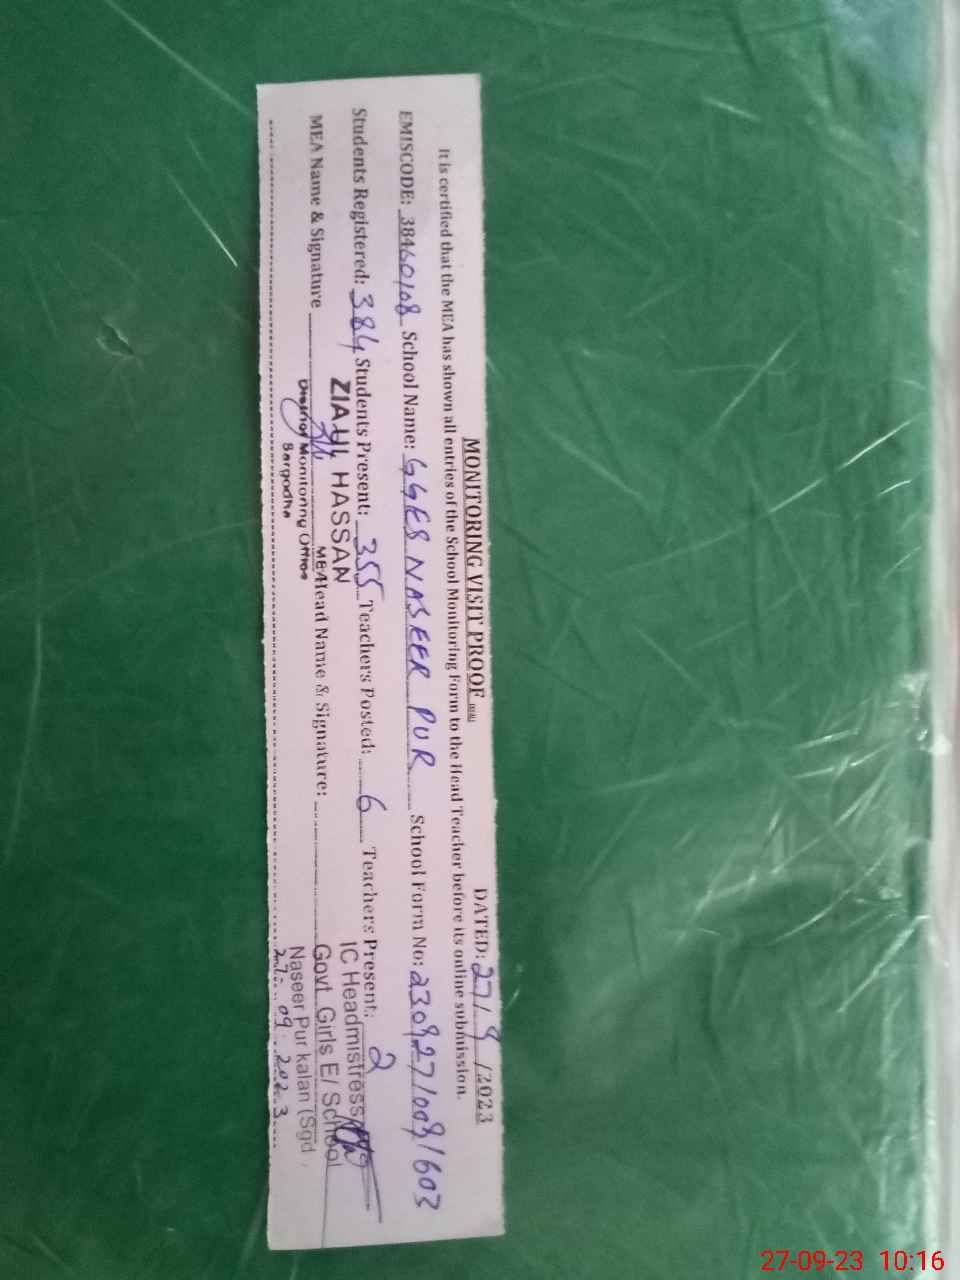 MONITORING VISIT PROOF
DATED: 27/9/2023
It is certified that the MEA has shown all entries of the School Monitoring Form to the Head Teacher before its online submission.
EMISCODE: 38460108 School Name: GGES NASEER PUR School Form No:
Students Registered: 384 Students Present: 355 Teachers Posted: 6 Teachers Present: 2
MEA Name & Signature
ZIA UL HASSAN
MEA
District Monitoring Office
Sargodha
Head Name & Signature:
IC Headmistress
Govt. Girls E/ School
Naseer Pur kalan (Sgd
27-09-23 10:16